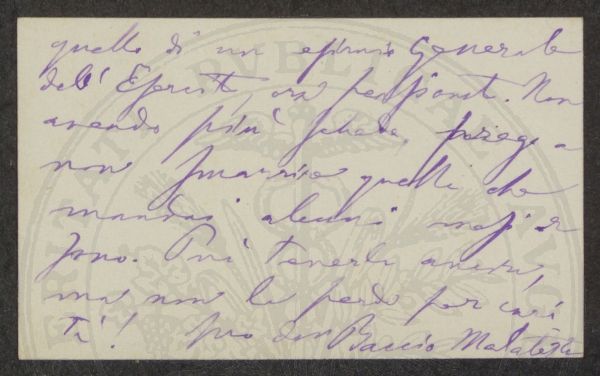 quello di un esimio Generale
dell' Esercito ora pensionato. Non
avendo più schede, prega
non quelli che
mandai alcuni mesi or
sono. Può tenerli ancora,
ma non li perda per cari
tà! Suo don Baccio Malatesta